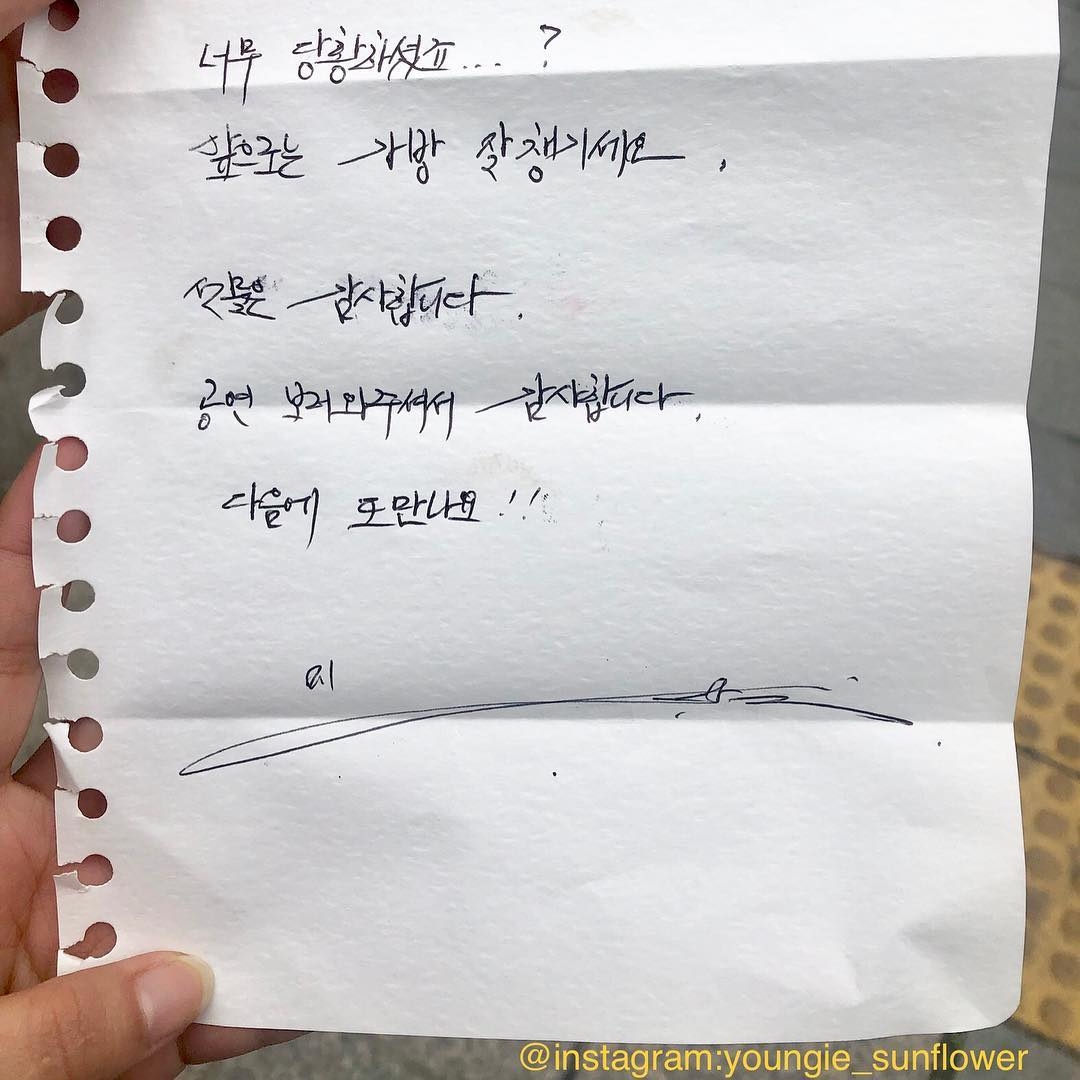 너무 당황하셨죠... ?
앞으로는 가방 잘 챙기세요.
선물은 감사합니다.
공연 보러와주셔서 감사합니다.
다음에 또 만나요!!
@instagram:youngie_sunflower